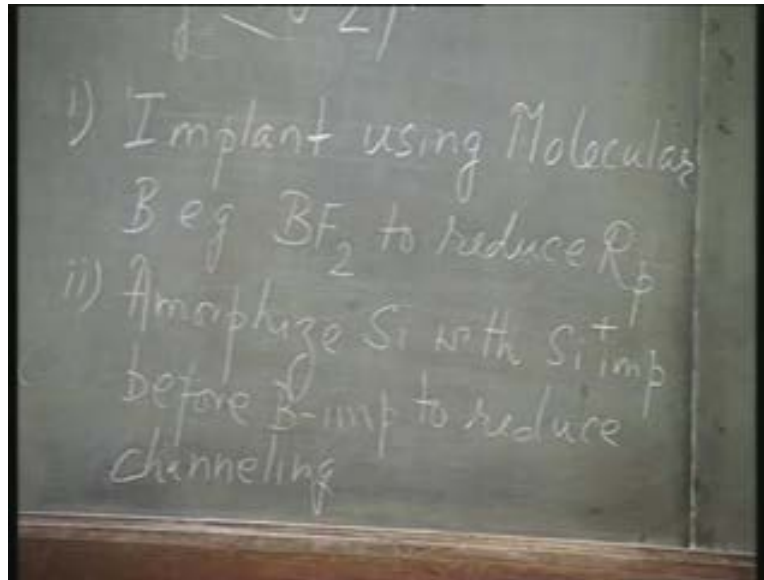 i) Implant using Molecular
B eg BF₂ to reduce Rp
ii) Amorphize Si with Si⁺ imp
before B-imp to reduce
channeling